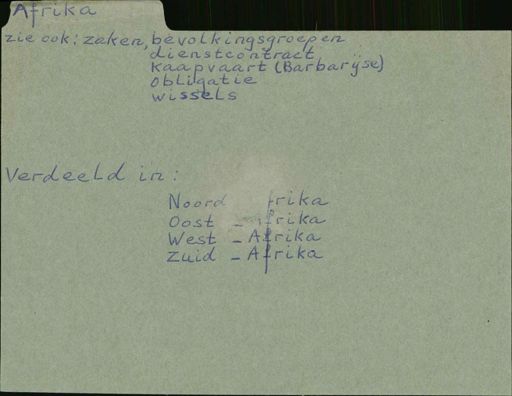 Afrika
zie ook: zaken, bevolkingsgroepen
dienstcontract
Kaapvaart (Barbarijse)
Obligatie
wissels
Verdeeld in:
Noord frika
Oost - frika
West - Afrika
Zuid - Afrika